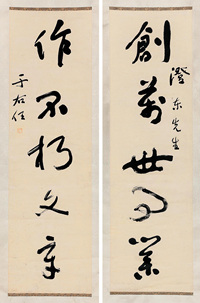 創萬世事業
澄东先生
作不朽文章
于右任